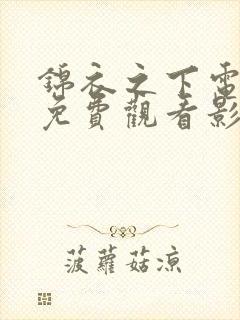 錦衣之下電
免費觀看影
菠蘿菇涼